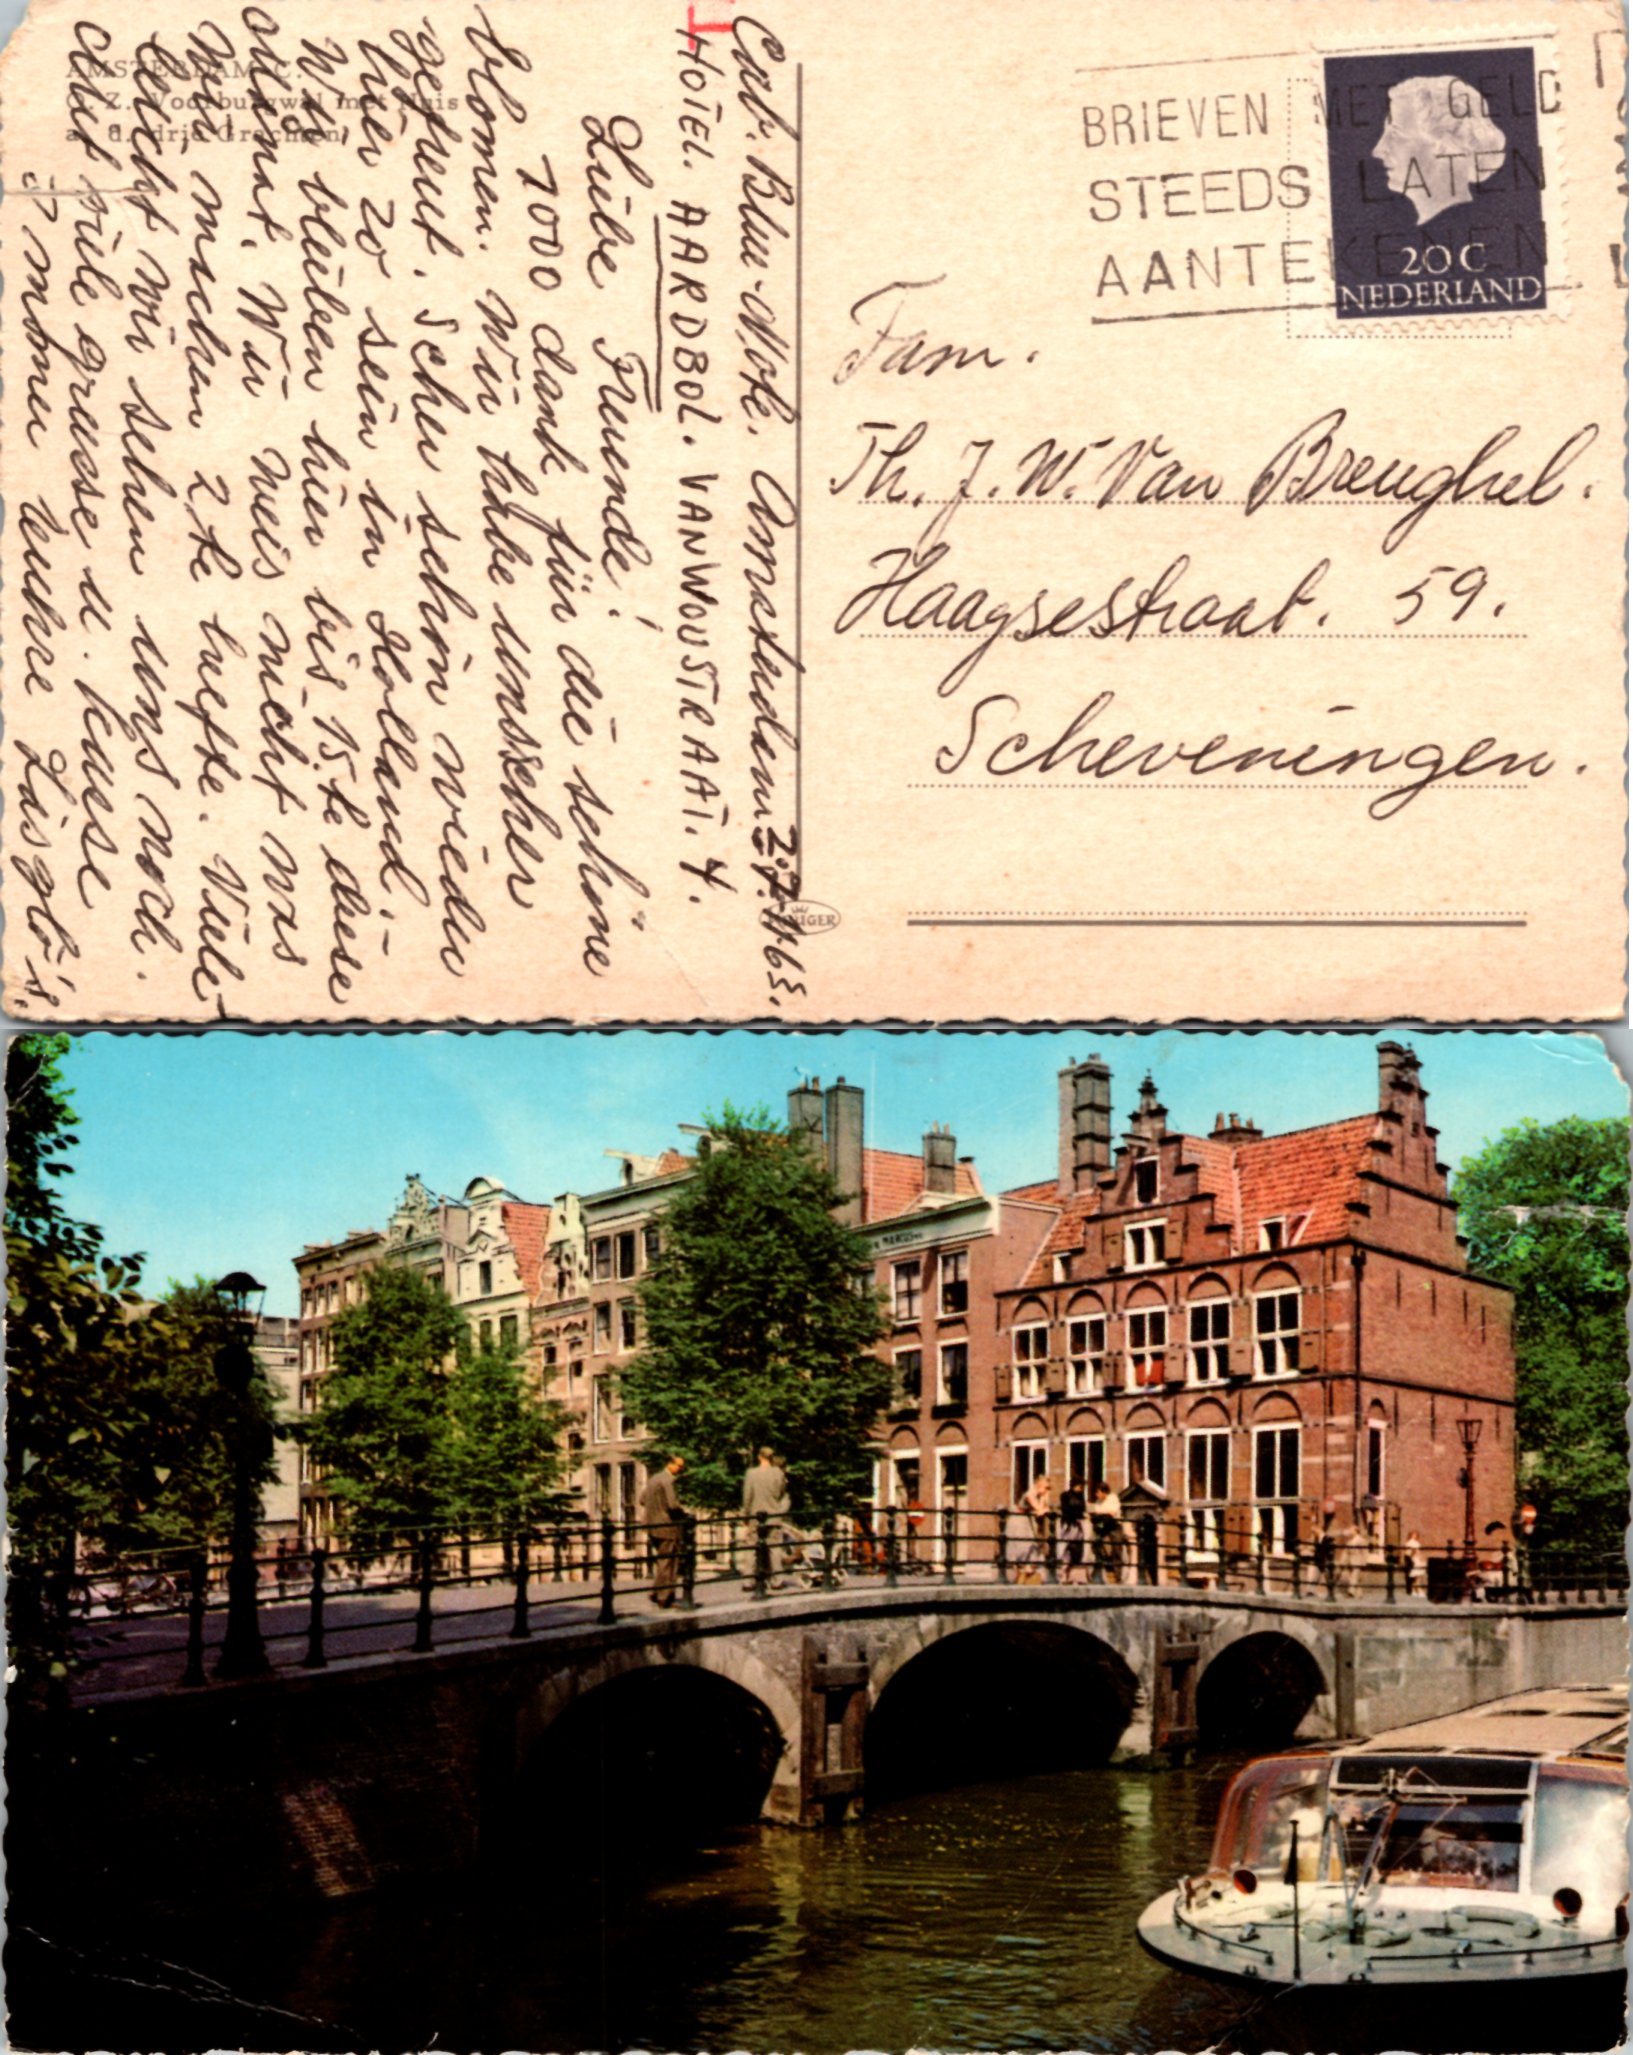 AMSTERDAM-C.
O. Z. Voorburgwal met Huis
a. d. drie Grachten
Cab. Blue-Note. Amsterdam 2.7.1963.
HOTEL. AARDBOL. VAN WOUSTRAAT. 4.
Liebe Freunde!
1000 dank für die schöne
blomen. Wir habe unsscher
gefreut. Scher schön wieder
hier zo sein in Holland.
Wir bleiben hier bis 15.te diese
Monat. Wir weis nicht was
wir machen 2.te helfte. Viele-
leicht wir sehen uns noch.
viele gruesse u. kuesse
immer Euhre Laszlo's.
BRIEVEN MET GELD
STEEDS LATEN
AANTEKENEN
20 C
NEDERLAND
Fam.
Th. J. W. Van Breughel.
Haagsestraat. 59.
Scheveningen.